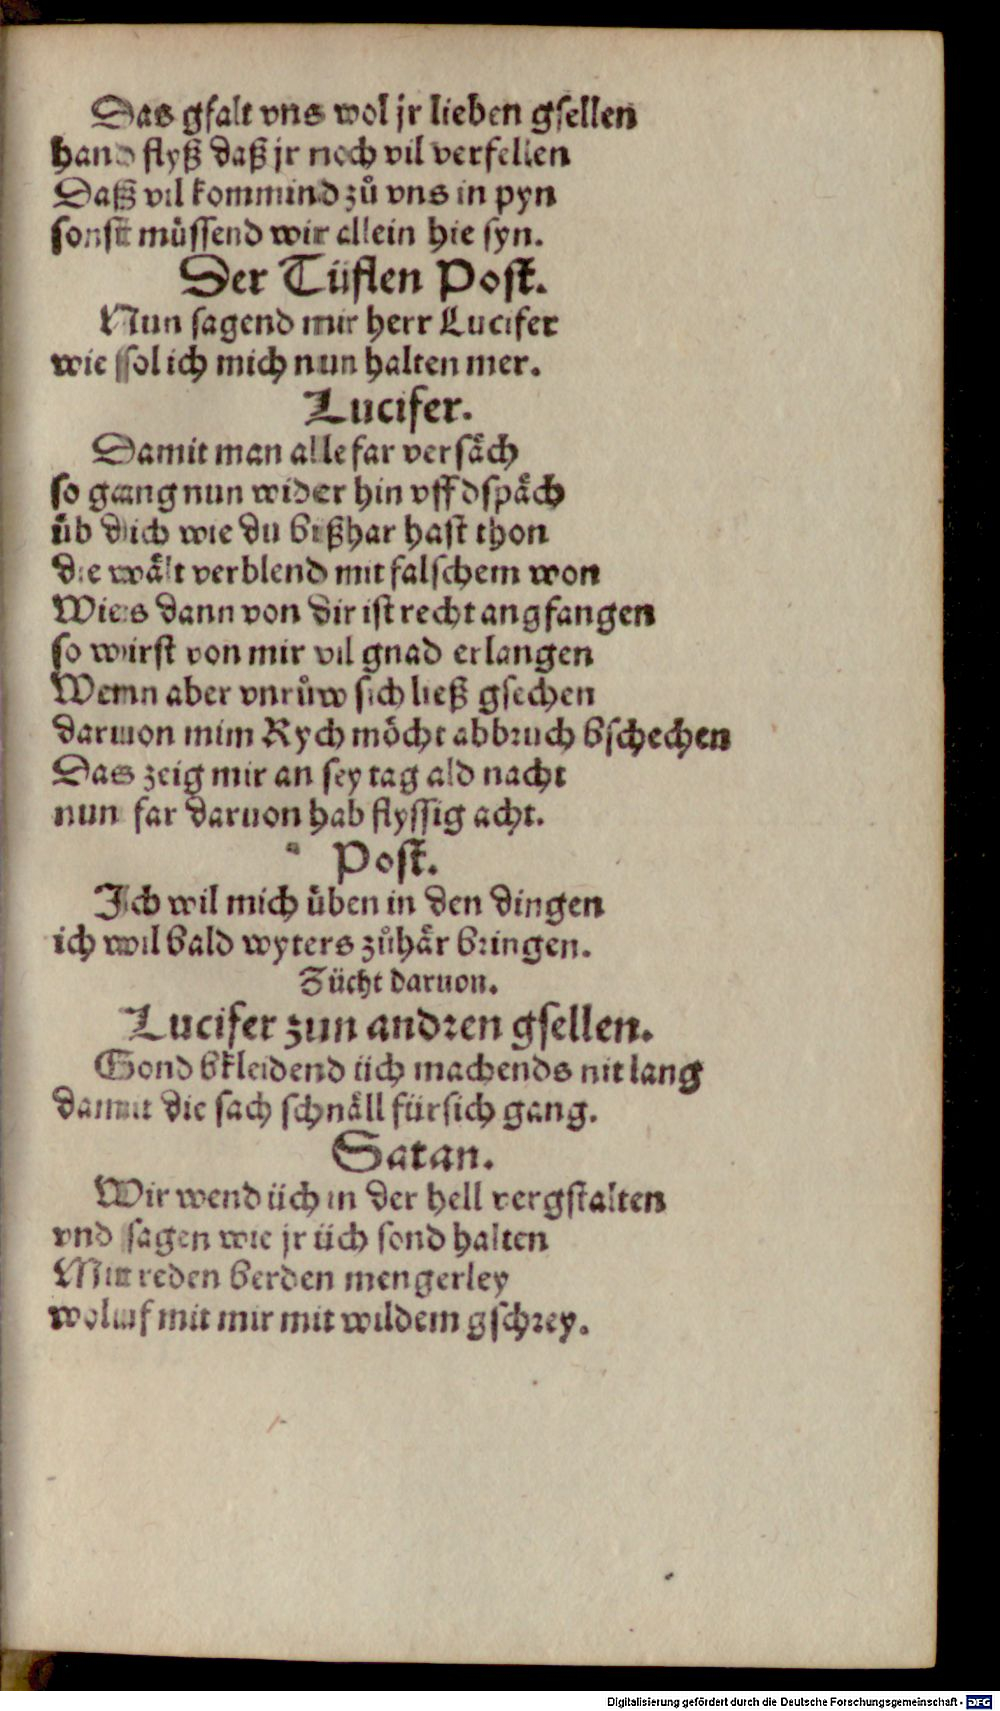 Das gfalt vns wol jr lieben gsellen
hand flyß daß jr noch vil verfellen
Daß vil kommind zů vns in pyn
sonst müssend wir allein hie syn.
Der Tüflen Post.
Nun sagend mir herr Lucifer
wie sol ich mich nun halten mer.
Lucifer.
Damit man alle far versäch
so gang nun wider hin vff dspäch
üb dich wie du bißhar hast thon
die wält verblend mit falschem won
Wies dann von dir ist recht angfangen
so wirst von mir vil gnad erlangen
Wenn aber vnrůw sich ließ gsechen
daruon mim Rych möcht abbruch bschechen
Das zeig mir an sey tag ald nacht
nun far daruon hab flyssig acht.
Post.
Ich wil mich üben in den dingen
ich wil bald wyters zůhär bringen.
Zücht daruon.
Lucifer zun andren gsellen.
Gond bkleidend üch machends nit lang
damit die sach schnäll für sich gang.
Satan.
Wir wend üch in der hell vergstalten
vnd sagen wie jr üch sond halten
Mitt reden berden mengerley
woluf mit mir mit wildem gschrey.
Digitalisierung gefördert durch die Deutsche Forschungsgemeinschaft - DFG